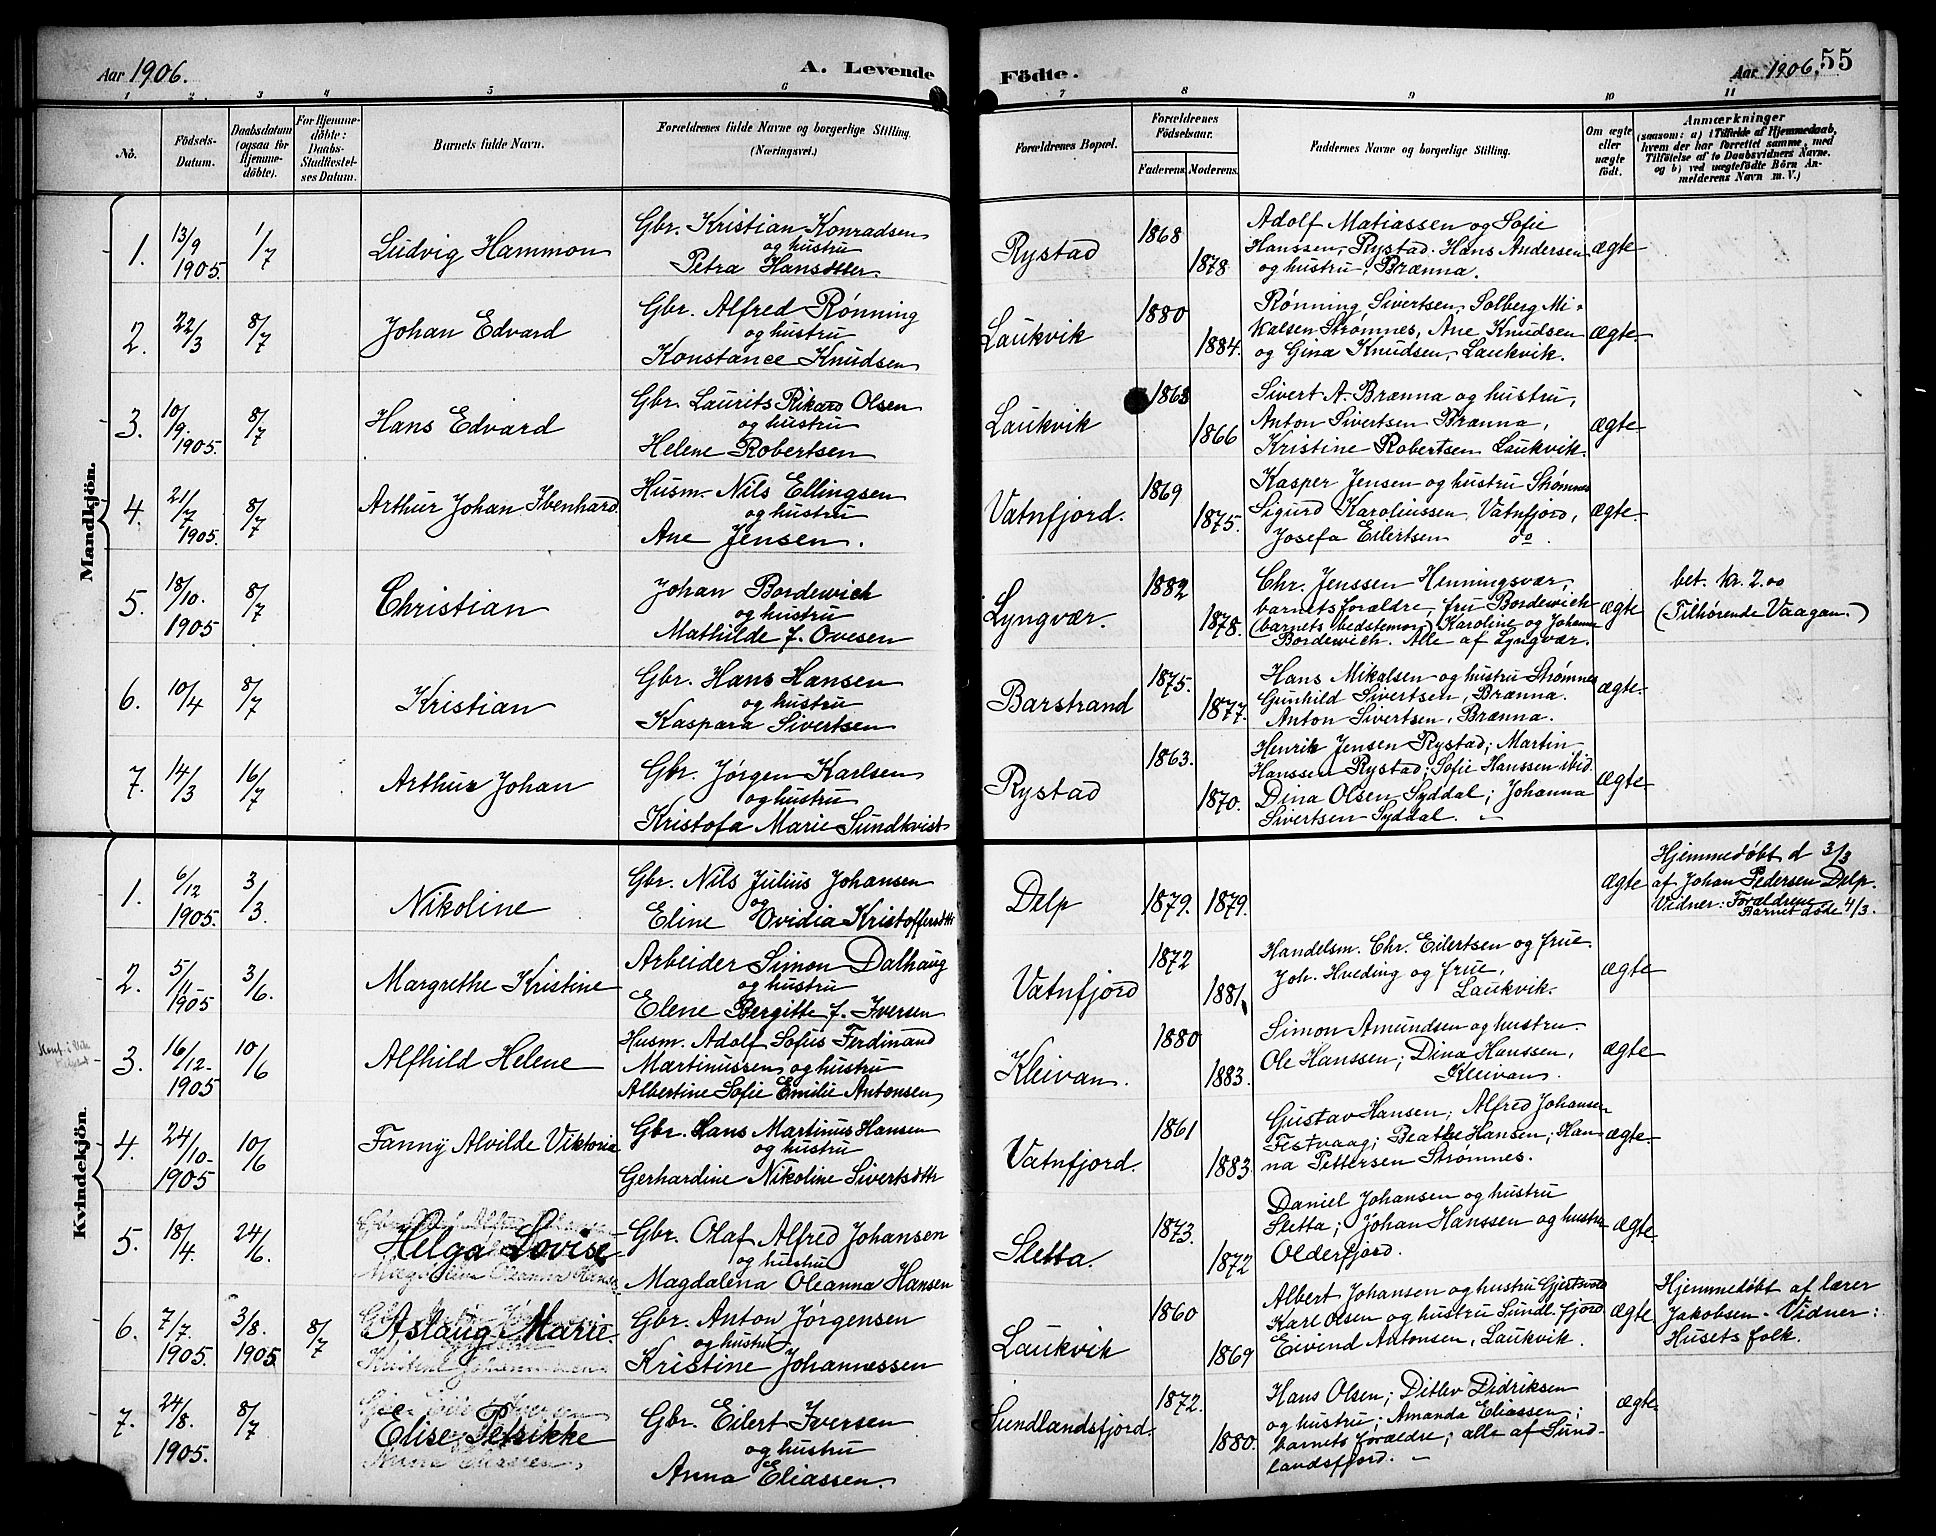 Aar 1906.
A. Levende Födte.
Aar 1906. 55
1 2 3 4 5 6 7 8 9 10 11
No.
Födsels-Datum.
Daabsdatum (ogsaa for Hjemme-döbte).
For Hjemme-döbte: Daabs-Stadfæstel-ses Datum.
Barnets fulde Navn.
Forældrenes fulde Navne og borgerlige Stilling.
(Næringsvei.)
Forældrenes Bopæl.
Forældrenes Födselsaar.
Faderens. Moderens.
Faddernes Navne og borgerlige Stilling.
Om ægte eller uægte födt.
Anmærkninger
(saasom: a) i Tilfælde af Hjemmedaab,
hvem der har forrettet samme, med
Tilföielse af to Daabsvidners Navne,
og b) ved uægtefödte Börn An-
melderens Navn m. V.)
Mandkjön.
1. 13/9 1905. 1/7 Ludvig Hammon
Gbr. Kristian Konradsen
og hustru
Petra Hansdtter.
Rystad 1868 1878
Adolf Matiassen og Sofie
Hanssen, Rystad. Hans Andersen
og hustru, Brænna.
ægte
2. 22/3 8/7 Johan Edvard
Gbr. Alfred Rønning
og hustru
Konstance Knudsen
Laukvik 1880 1884.
Rønning, Sivertsen, Solberg Mi-
kalsen Strømnes, Ane Knudsen
og Gina Knudsen, Laukvik.
ægte
3. 10/9. 1905. 8/7 Hans Edvard
Gbr. Laurits Rikard Olsen
og hustru
Helene Robertsen
Laukvik 1868 1866
Sivert A. Brænna og hustru,
Anton Sivertsen Brænna,
Kristine Robertsen Laukvik.
ægte
4. 21/7 1905. 8/7 Arthur Johan Ibenhard
Husm. Nils Ellingsen
og hustru
Ane Jensen.
Vatnfjord. 1869 1875.
Kasper Jensen og hustru Strømnes
Sigurd Karoliussen, Vatnfjord,
Josefa Eilertsen do.
ægte
5. 18/10. 1905 8/7 Christian
Johan Bordewich
og hustru
Mathilde f. Ovesen
Lyngvær. 1882 1878.
Chr. Jenssen Henningsvær,
barnets forældre, fru Bordewich
(barnets bedstemor,) Karoline og Johanne
Bordewich. Alle af Lyngvær.
ægte
bet. kr. 2.00
(Tilhørende Vaagan.)
6. 10/4 8/7 Kristian
Gbr. Hans Hansen
og hustru
Kaspara Sivertsen
Barstrand 1875. 1877.
Hans Mikalsen og hustru Strømnes
Gunhild Sivertsen, Brænna.
Anton Sivertsen, Brænna.
ægte
7. 14/3 16/7 Arthur Johan
Gbr. Jørgen Karlsen
og hustru
Kristofa Marie Sundkvist
Rystad 1863. 1870.
Henrik Jensen Rystad; Martin
Hanssen Rystad; Sofie Hanssen ibid.
Dina Olsen Syddal; Johanna
Sivertsen Syddal.
ægte
Kvindekjön.
1. 6/12 1905. 3/3 Nikoline
Gbr. Nils Julius Johansen
og
Eline Ovidia Kristoffersdttr
Delp 1879. 1879.
ægte
Hjemmedøbt d 3/3
af Johan Pedersen Delp.
Vidner: Forældrene
Barnet døde 4/3.
2. 5/11- 1905 3/6. Margrethe Kristine
Arbeider Simon Dalhaug
og hustru
Elene Bergitte f. Iversen
Vatnfjord 1872 1881
Handelsm. Chr. Eilertsen og frue.
Joh. Hveding og frue,
Laukvik.
ægte
3. 16/12- 1905 10/6 Alfhild Helene
Husm. Adolf Sofus Ferdinand
Martinussen og hustru
Albertine Sofie Emilie Antonsen
Kleivan. 1880 1883.
Simon Amundsen og hustru
Ole Hanssen; Dina Hanssen,
Kleivan.
ægte
4. 24/10- 1905 10/6 Fanny Alvilde Viktoria
Gbr. Hans Martinus Hansen
og hustru
Gerhardine Nikoline Sivertsdttr
Vatnfjord. 1861 1883.
Gustav Hansen; Alfred Johansen
Festvaag; Beathe Hansen; Han-
na Pettersen Strømnes.
ægte
5. 18/4. 24/6. Helga Lovise
Gbr. Olaf Alfred Johansen
og hustru
Magdalena Oleanna Hansen
Sletta. 1873. 1872
Daniel Johansen og hustru
Sletta; Johan Hanssen og hustru
Olderfjord.
ægte
6. 7/7. 1905. 3/8. 1905. 8/7 Aslaug Marie
Gbr. Anton Jørgensen
og hustru
Kristine Johannessen
Laukvik 1860 1869
Albert Johansen og hustru Gjertsvold
Karl Olsen og hustru Sundl. fjord
Eivind Antonsen, Laukvik.
ægte
Hjemmedøbt af lærer
Jakobsen. Vidner:
Husets folk.
7. 24/8. 1905. 8/7 Elise Petrikke
Gbr. Eilert Iversen
og hustru
Anna Eliassen
Sundlandsfjord. 1872. 1880.
Hans Olsen; Ditlev Didriksen
og hustru; Amanda Eliassen;
barnets forældre; alle af Sund-
landsfjord.
ægte